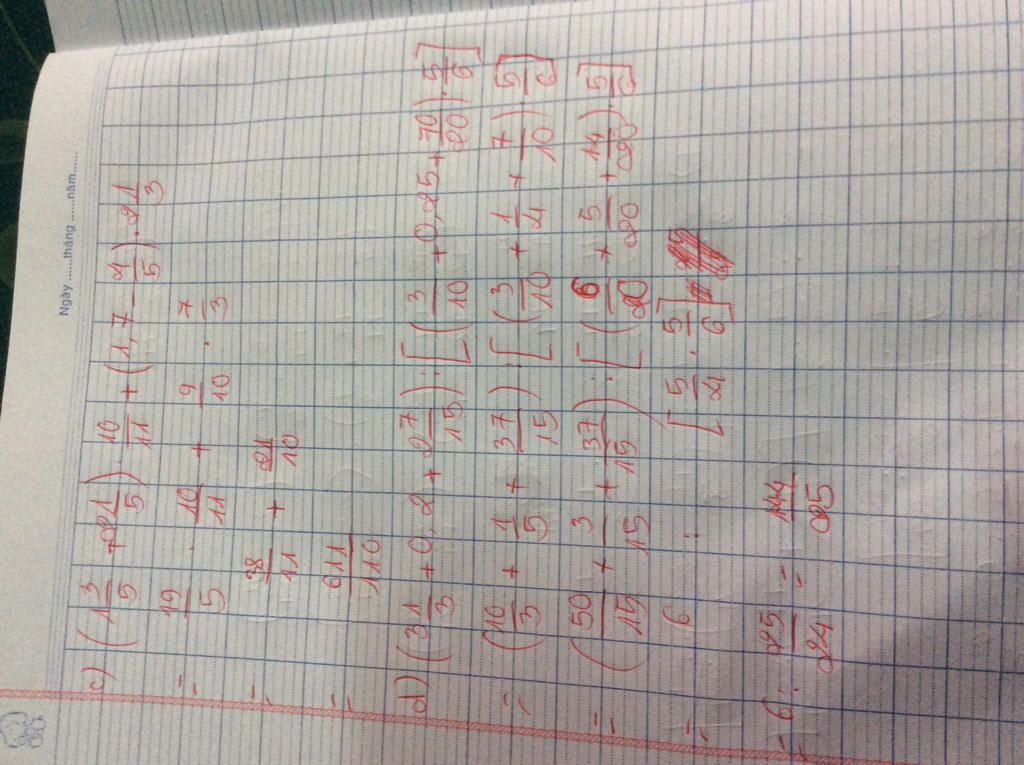 Ngày ......tháng ......năm......
c) (1 3/5 + 2 1/5) . 10/11 + (1,7 - 4/5) . 2 1/3
= 19/5 . 10/11 + 9/10 . 7/3
= 38/11 + 21/10
= 611/110
d) (3 1/3 + 0,2 + 2 7/15) : [(3/10 + 0,25 + 70/20) . 5/6]
= (10/3 + 1/5 + 37/15) : [(3/10 + 1/4 + 7/10) . 5/6]
= (50/15 + 3/15 + 37/15) : [(6/20 + 5/20 + 14/20) . 5/6]
= 6 : [5/4 . 5/6]
= 6 : 25/24 = 144/25